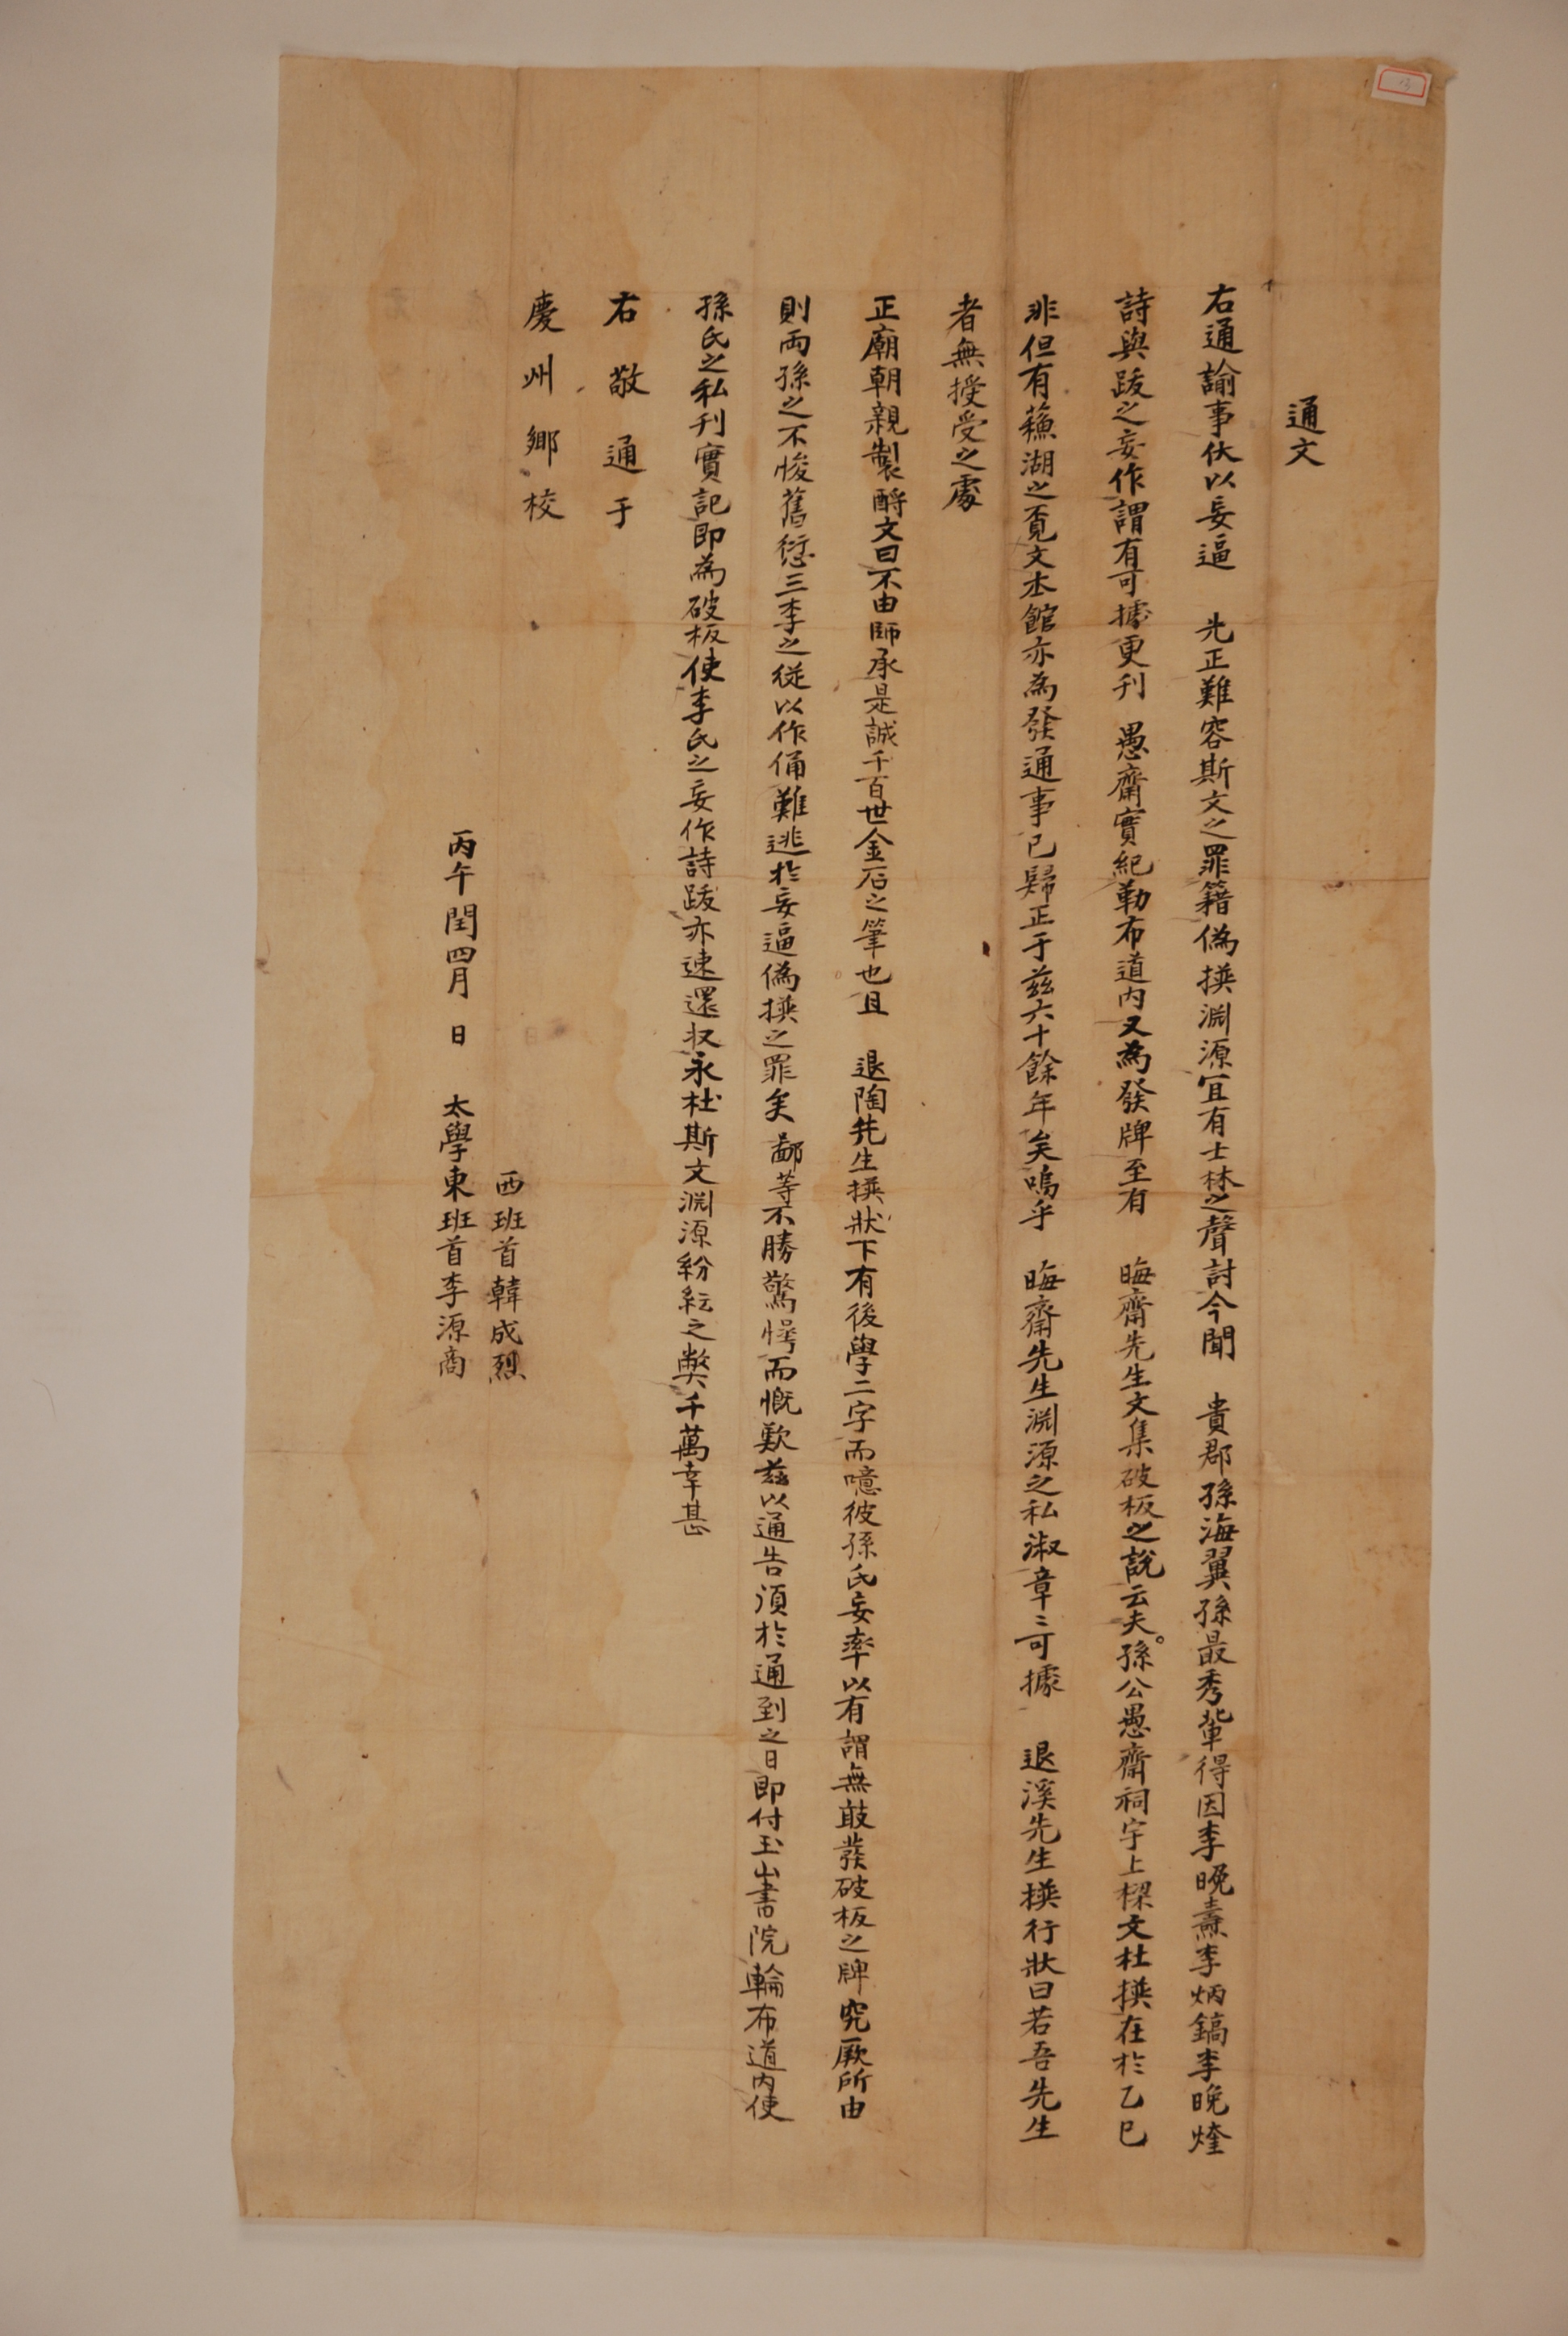 通文
右通諭事伏以妄逼 先正難容斯文之罪籍僞撰淵源冝有士林之聲討今聞 貴郡孫海翼孫最秀軰得因李晩燾李炳鎬李晩煃
詩與跋之妄作謂有可據更刊 愚齋實紀勒布道內又為發牌至有 晦齋先生文集破板之說云夫孫公愚齋祠宇上樑文杜撰在於乙巳
非但有蘓湖之覔文本館亦為發通事已歸正于玆六十餘年矣嗚乎 晦齋先生淵源之私淑章〻可據 退溪先生撰行狀曰若吾先生
者無授受之處
正廟朝親製酹文曰不由師承是誠千百世金石之筆也且 退陶先生撰狀下有後學二字而噫彼孫氏妄率以有謂無敢發破板之牌究厥所由
則兩孫之不悛舊愆三李之從以作俑難逃於妄逼僞撰之罪矣鄙等不勝驚愕而慨歎玆以通告須於通到之日即付玉山書院輪布道內使
孫氏之私刊實記即為破板使李氏之妄作詩跋亦速還収永杜斯文淵源紛紜之弊千萬幸甚
右敬通于
慶州鄉校
丙午閏四月 日 太學東班首李源商
西班首韓成烈